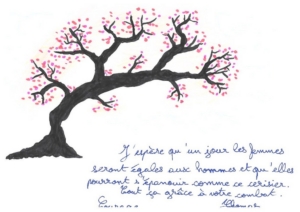 J'espère qu'un jour les femmes
seront égales aux hommes et qu'elles
pourront s'épanouir comme ce cerisier.
Tout ça grâce à votre combat.